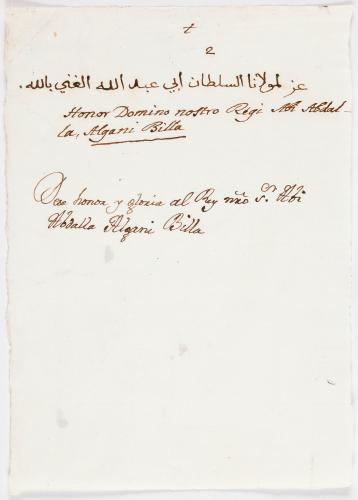 t
2
عز لمولانا السلطان أبي عبد الله الغني بالله.
Honor Domino nostro Regi Abi Abdal-
la, Algani Billa
honor y gloria al Rey nr̃o S.r Abi
Abdalla Algani Billa